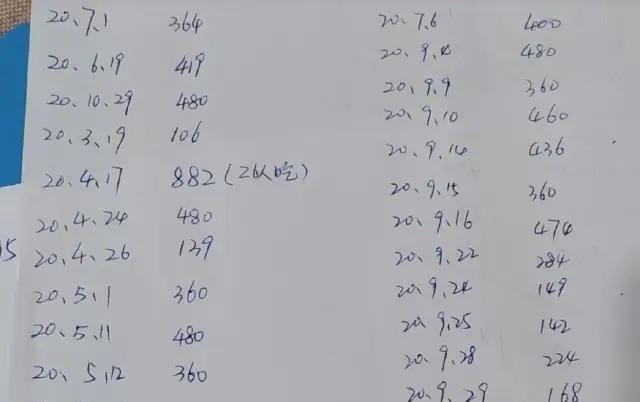 20、7、1 364
20、6、19 419
20、10、29 480
20、3、19 106
20、4、17 882（2人吃）
20、4、24 480
20、4、26 139
20、5、1 360
20、5、11 480
20、5、12 360
20、7、6 400
20、9、4 480
20、9、9 360
20、9、10 460
20、9、14 436
20、9、15 360
20、9、16 474
20、9、22 284
20、9、24 149
20、9、25 142
20、9、28 224
20、9、29 168